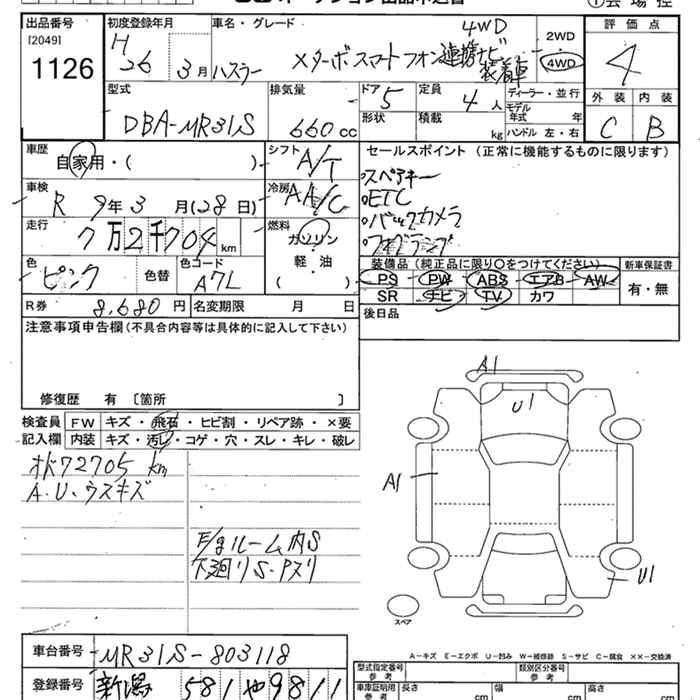 出品番号 初度登録年月 車名・グレード 評価点
[2049] H 26 3月 ハスラー Xターボスマートフォン連携ナビ装着車 4WD 2WD 4WD 4
1126
型式 排気量 ドア 定員 ディーラー・並行 外装 内装
DBA-MR31S 660cc 5 4人 モデル年式 年 C B
形状 積載 kg ハンドル 左・右
車歴 シフト セールスポイント (正常に機能するものに限ります)
自家用・( )・ A/T スペアキー
車検 冷房 ETC
R 9年3月(28日) AA/C バックカメラ
走行 燃料 フォグランプ
7万2千704km ガソリン
軽・油
( )
色 色替 色コード 装備品(純正品に限り○をつけてください) 新車保証書
ピンク A7L PS PW ABS エアB AW 有・無
SR ナビ TV カワ
R券 8,680円 名変期限 月 日 後日品
注意事項申告欄(不具合内容等は具体的に記入して下さい)
修復歴 有 〔箇所 〕
検査員 FW キズ・飛石・ヒビ割・リペア跡・×要
記入欄 内装 キズ・汚レ・コゲ・穴・スレ・キレ・破レ
オド72705km
A.U.ウスキズ
F/gルーム内S
下廻りS・Pスリ
A1
U1
A1
U1
スペア
A-キズ E-エクボ U-凹み W-補修跡 S-サビ C-腐食 XX-交換済
車台番号 MR31S-803118
登録番号 新潟 581 や 9811
型式指定番号 参考 類別区分番号 参考
車庫証明用 参考 長さ cm 幅 cm 高さ cm